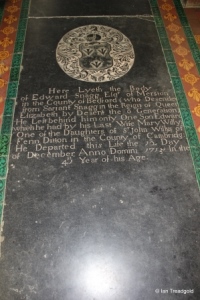 Here Lyeth the Body
of Edward Snagg Esqr. of Merston
in the County of Bedford (who Descended
from Sarjant Snagg in the Reign of Queen
Elizabeth by Desent the Generation)
He Left behind him only One Son Edward
which he had by his Last Wife Mary Willys
One of the Daughters of Sr. John Willys of
Fenn Ditton in the County of Cambridg
He Departed this Life the Day
of December Anno Domini
Year of his Age.
© Ian Treadgold